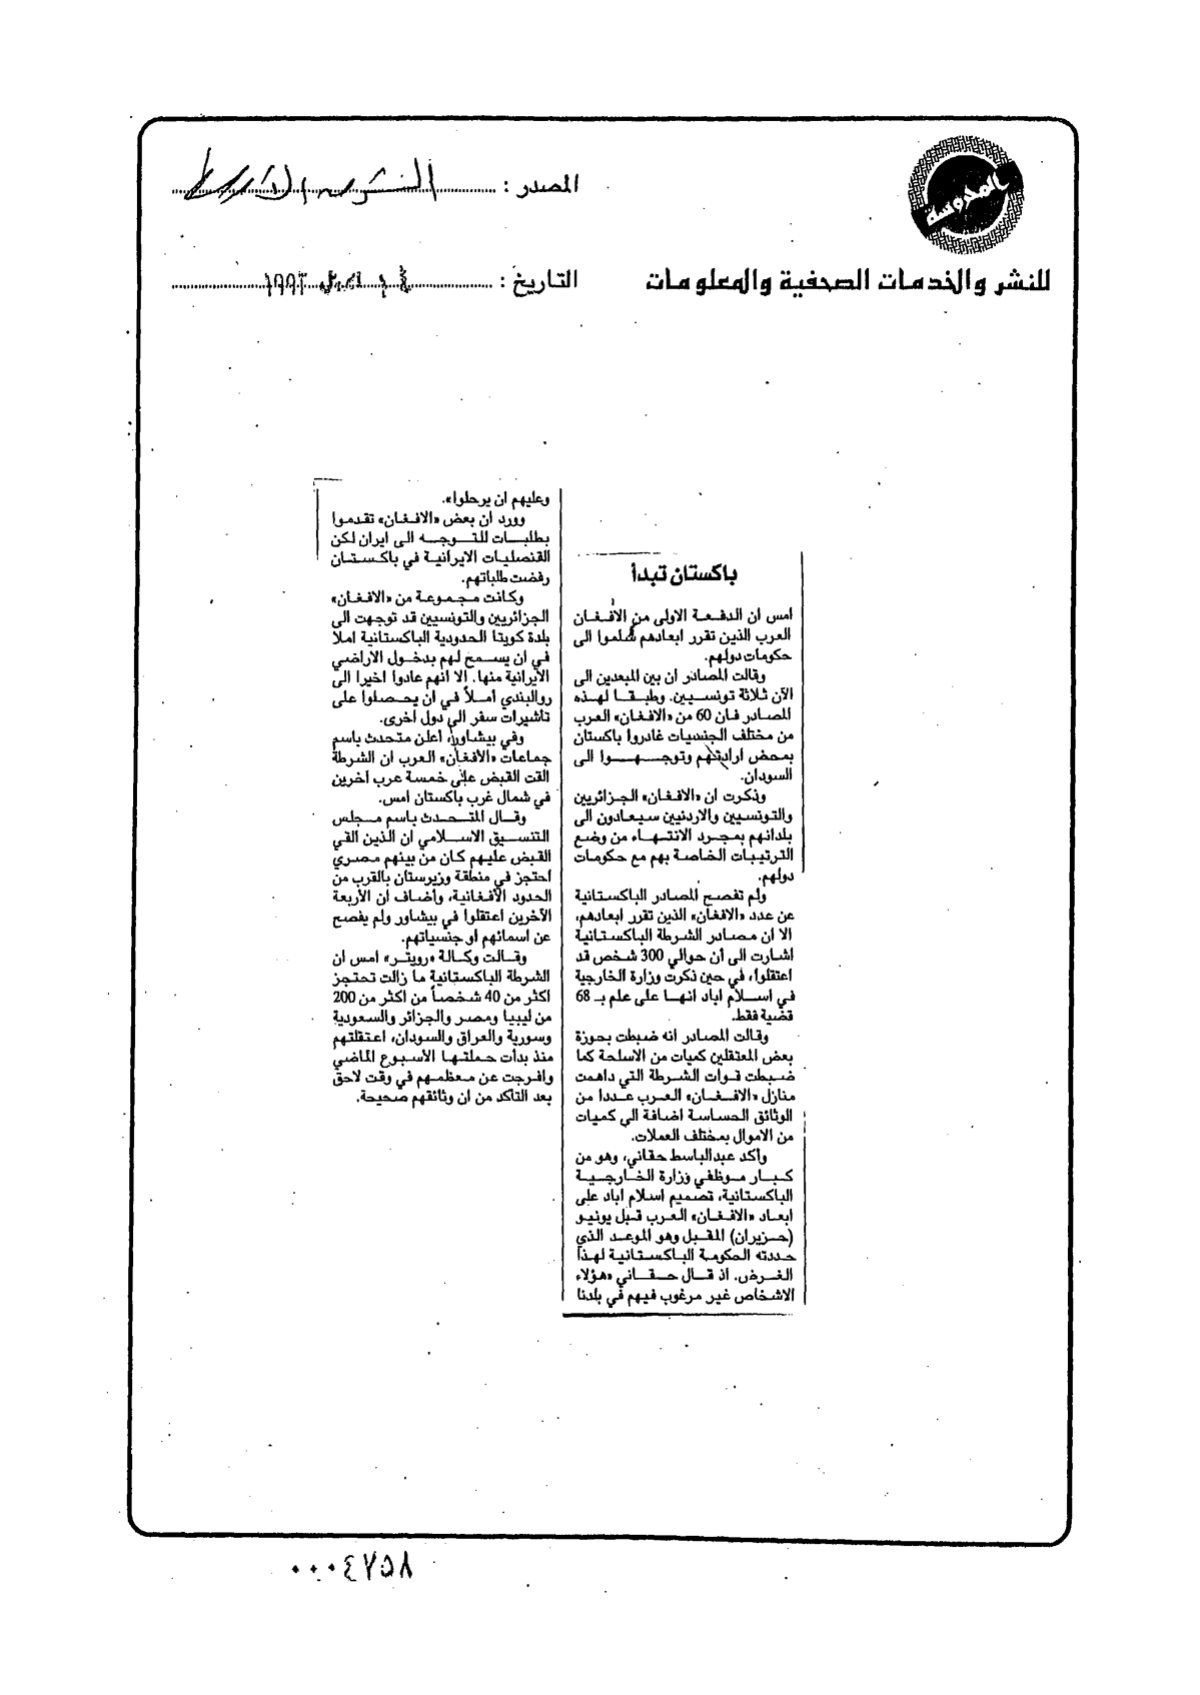 المحروسة
للنشر والخدمات الصحفية والمعلومات
المصدر : الشرق الأوسط
التاريخ : أبريل ١٩٩٣
باكستان تبدأ
امس ان الدفعة الاولى من الأفغان
العرب الذين تقرر ابعادهم سُلموا الى
حكومات دولهم.
وقالت المصادر ان بين المبعدين الى
الآن ثلاثة تونسيين. وطبقا لهذه
المصادر فان 60 من «الافغان» العرب
من مختلف الجنسيات غادروا باكستان
بمحض ارادتهم وتوجهوا الى
السودان.
وذكرت ان «الافغان» الجزائريين
والتونسيين والاردنيين سيعادون الى
بلدانهم بمجرد الانتهاء من وضع
الترتيبات الخاصة بهم مع حكومات
دولهم.
ولم تفصح المصادر الباكستانية
عن عدد «الافغان» الذين تقرر ابعادهم،
الا ان مصادر الشرطة الباكستانية
اشارت الى أن حوالي 300 شخص قد
اعتقلوا، في حين ذكرت وزارة الخارجية
في اسلام اباد انها على علم بـ 68
قضية فقط.
وقالت المصادر انه ضبطت بحوزة
بعض المعتقلين كميات من الاسلحة كما
ضبطت قوات الشرطة التي داهمت
منازل «الافغان» العرب عددا من
الوثائق الحساسة اضافة الى كميات
من الاموال بمختلف العملات.
وأكد عبدالباسط حقاني، وهو من
كبار موظفي وزارة الخارجية
الباكستانية، تصميم اسلام اباد على
ابعاد «الافغان» العرب قبل يونيو
(حزيران) المقبل وهو الموعد الذي
حددته الحكومة الباكستانية لهذا
الغرض. اذ قال حقاني «هؤلاء
الاشخاص غير مرغوب فيهم في بلدنا
وعليهم ان يرحلوا».
وورد ان بعض «الافغان» تقدموا
بطلبات للتوجه الى ايران لكن
القنصليات الايرانية في باكستان
رفضت طلباتهم.
وكانت مجموعة من «الافغان»
الجزائريين والتونسيين قد توجهت الى
بلدة كويتا الحدودية الباكستانية املا
في ان يسمح لهم بدخول الاراضي
الايرانية منها. الا انهم عادوا اخيرا الى
روالبندي أملاً في ان يحصلوا على
تاشيرات سفر الى دول اخرى.
وفي بيشاور، أعلن متحدث باسم
جماعات «الأفغان» العرب ان الشرطة
القت القبض على خمسة عرب اخرين
في شمال غرب باكستان امس.
وقال المتحدث باسم مجلس
التنسيق الاسلامي ان الذين القي
القبض عليهم كان من بينهم مصري
احتجز في منطقة وزيرستان بالقرب من
الحدود الأفغانية، وأضاف ان الأربعة
الآخرين اعتقلوا في بيشاور ولم يفصح
عن اسمائهم او جنسياتهم.
وقالت وكالة «رويتر» امس ان
الشرطة الباكستانية ما زالت تحتجز
اكثر من 40 شخصاً من اكثر من 200
من ليبيا ومصر والجزائر والسعودية
وسورية والعراق والسودان، اعتقلتهم
منذ بدأت حملتها الأسبوع الماضي
وافرجت عن معظمهم في وقت لاحق
بعد التأكد من ان وثائقهم صحيحة.
٠٠٠٤٧٥٨